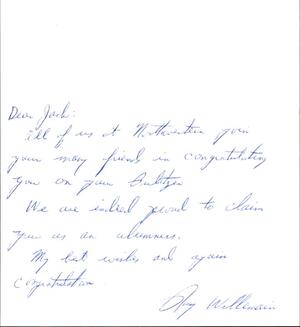 Dear Jack:
All of us at Northwestern join
your many friend in congratulating
you on your Pulitzer
We are indeed proud to claim
you as an alumnus.
My best wishes and again
congratulation